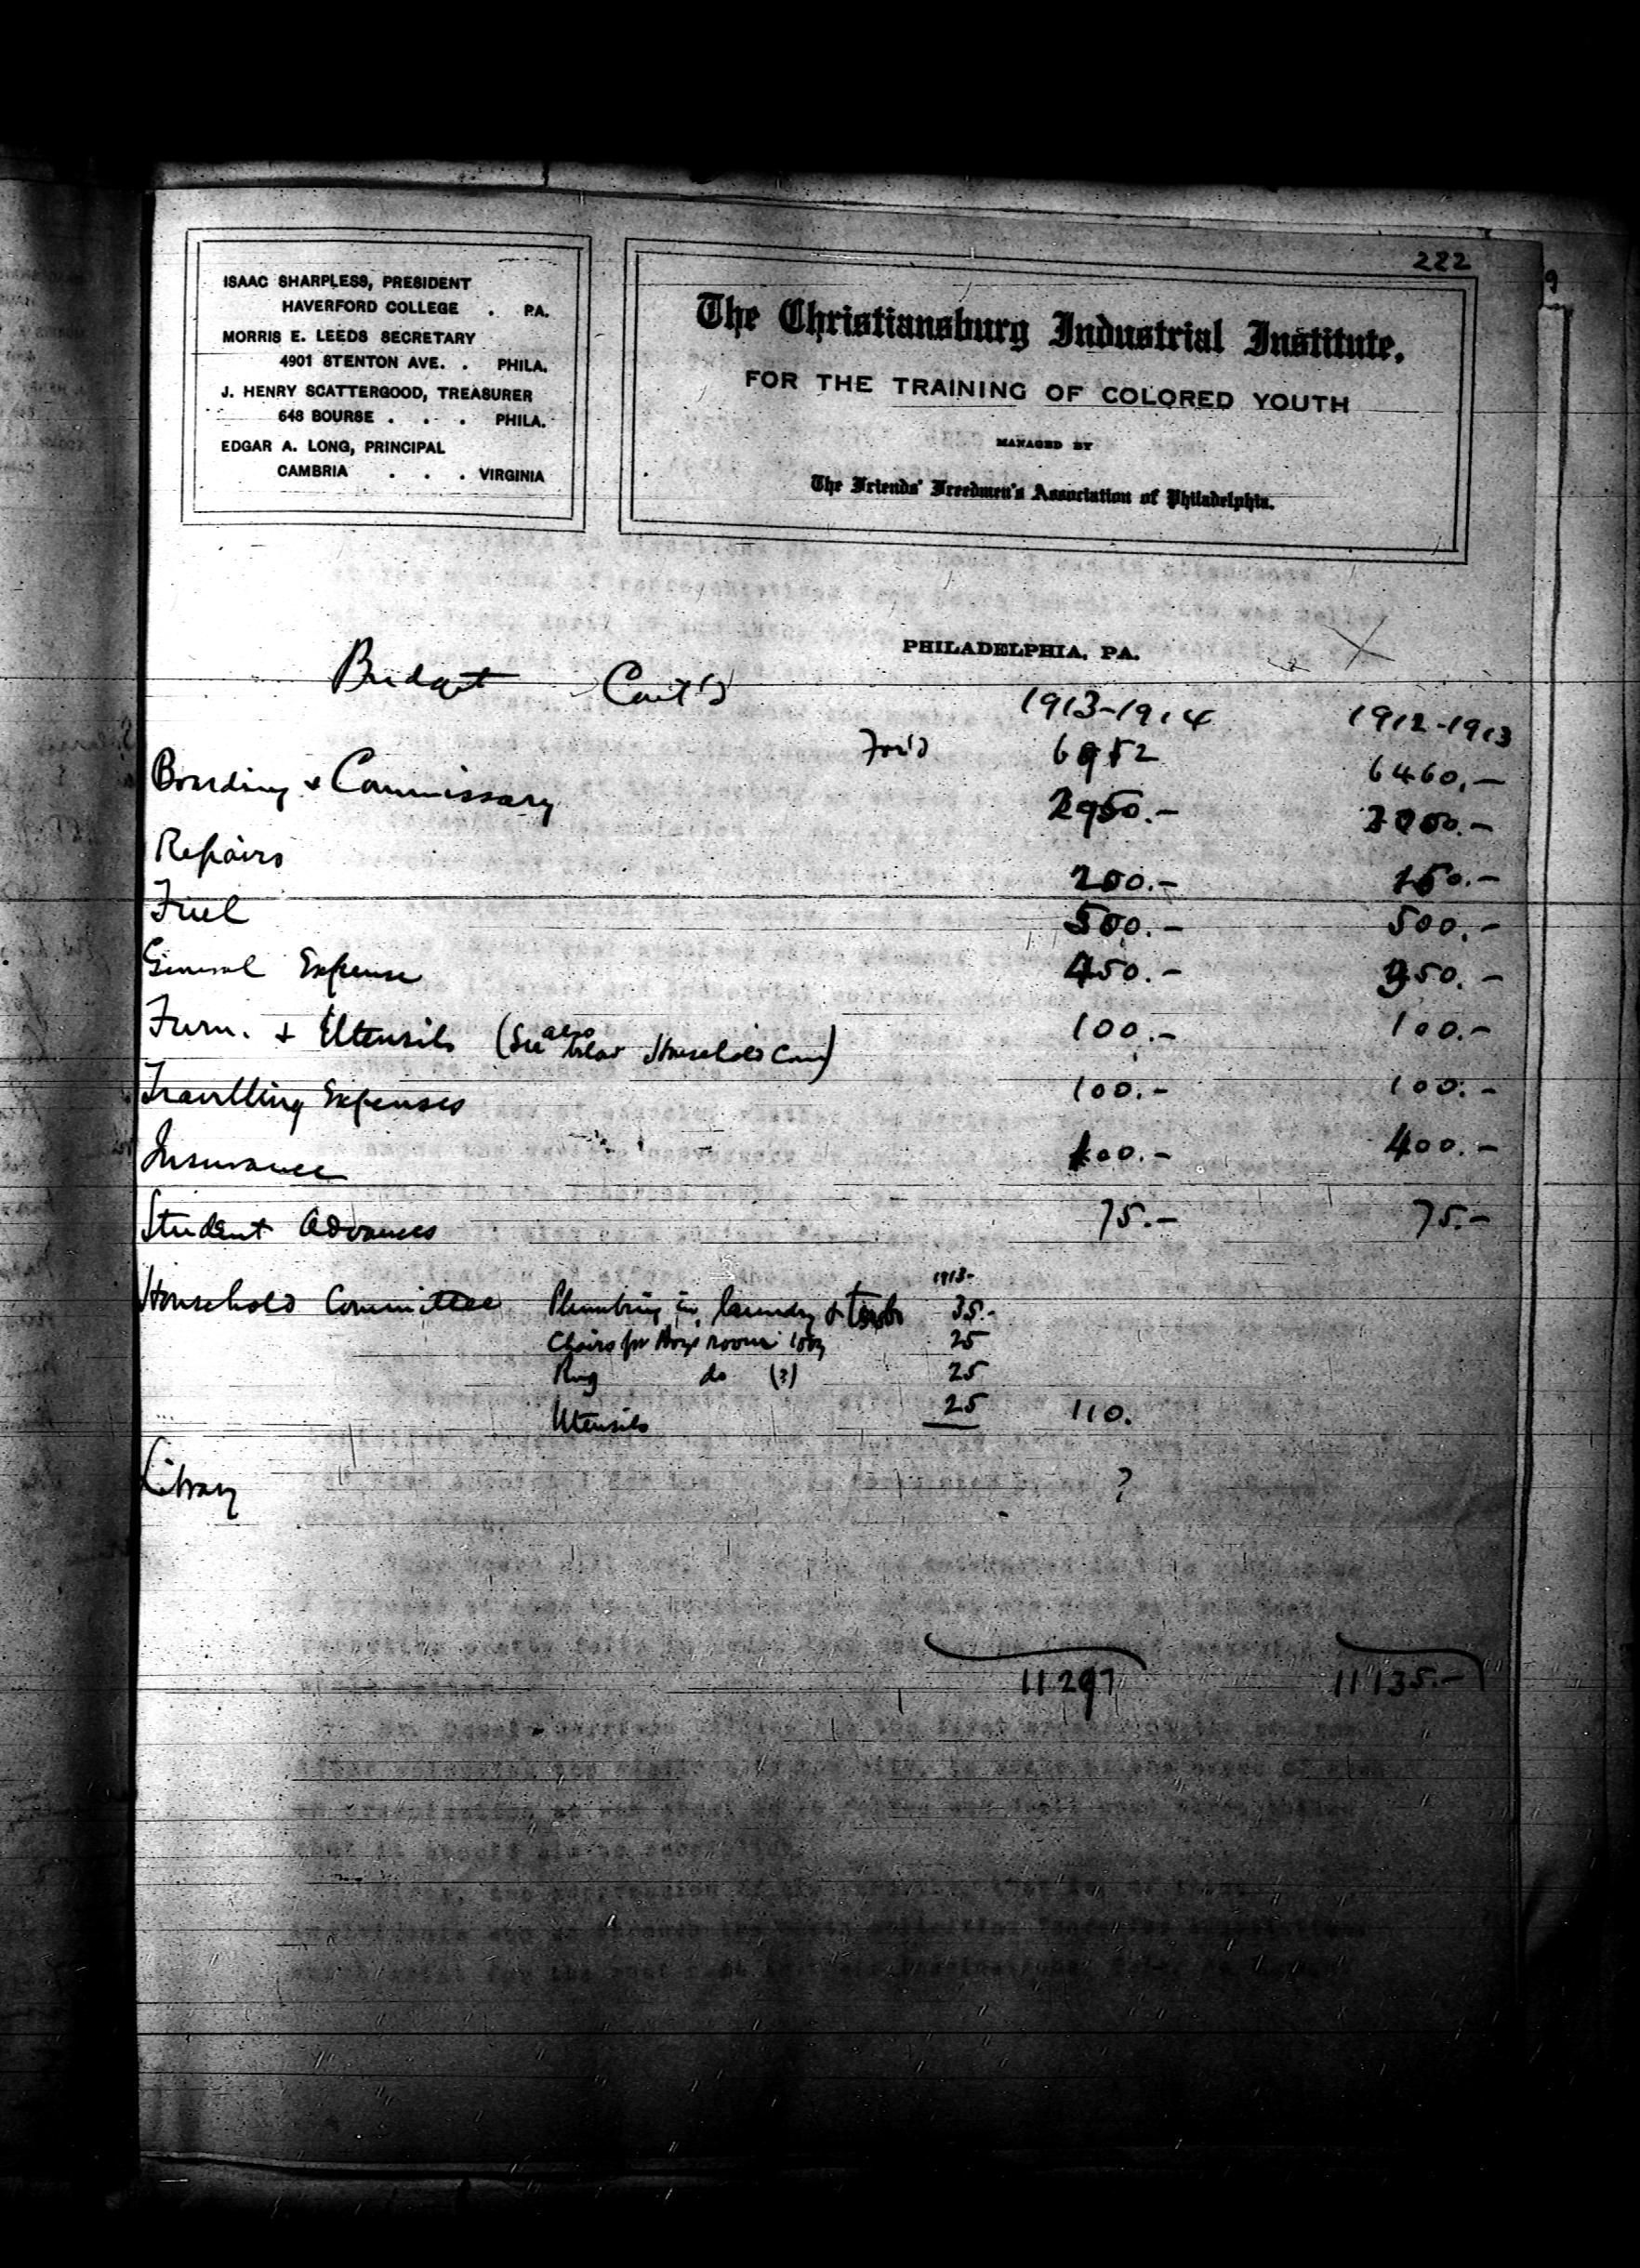 222
ISAAC SHARPLESS, PRESIDENT
HAVERFORD COLLEGE . PA.
MORRIS E. LEEDS SECRETARY
4901 STENTON AVE. . PHILA.
J. HENRY SCATTERGOOD, TREASURER
648 BOURSE . . . PHILA.
EDGAR A. LONG, PRINCIPAL
CAMBRIA . . . VIRGINIA
The Christiansburg Industrial Institute.
FOR THE TRAINING OF COLORED YOUTH
MANAGED BY
The Friends' Freedmen's Association of Philadelphia.
PHILADELPHIA, PA.
Budget Cont'd 1913-1914 1912-1913
For'd 6952 6460.-
Boarding & Commissary 2950.- 3000.-
Repairs 200.- 150.-
Fuel 500.- 500.-
General Expense 450.- 350.-
Furn. & Utensils (See also below Household Com) 100.- 100.-
Travelling Expenses 100.- 100.-
Insurance 400.-
Student Advances 75.- 75.-
1913-
Household Committee Plumbing in laundry & 35.-
Chairs for Boys room 25
Rug do (?) 25
Utensils 25 110.
Library ?
11297 11135.-